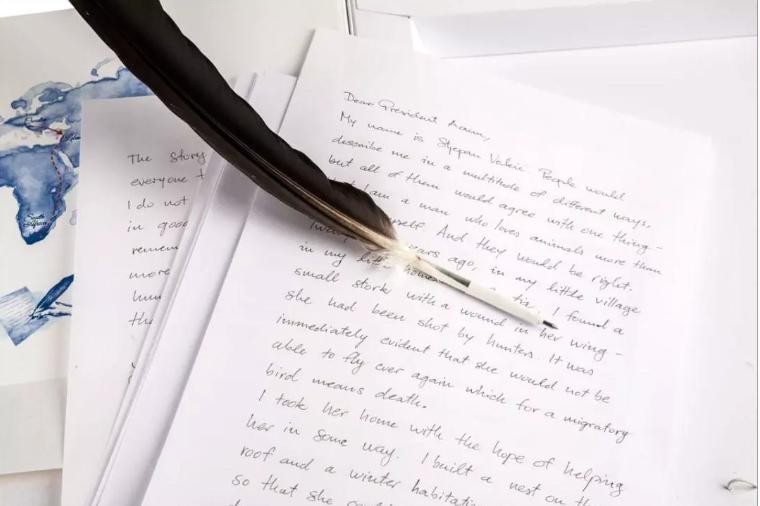 Dear President Aoun,
My name is Stjepan Vokić. People would
describe me in a multitude of different ways,
but all of them would agree with one thing -
I am a man who loves animals more than
myself. And they would be right.
years ago, in my little village
in my I found a
small stork with a wound in her wing -
she had been shot by hunters. It was
immediately evident that she would not be
able to fly ever again which for a migratory
bird means death.
I took her home with the hope of helping
her in some way. I built a nest on
roof and a winter
so that she
The story
everyone
I do not
in good
more
South